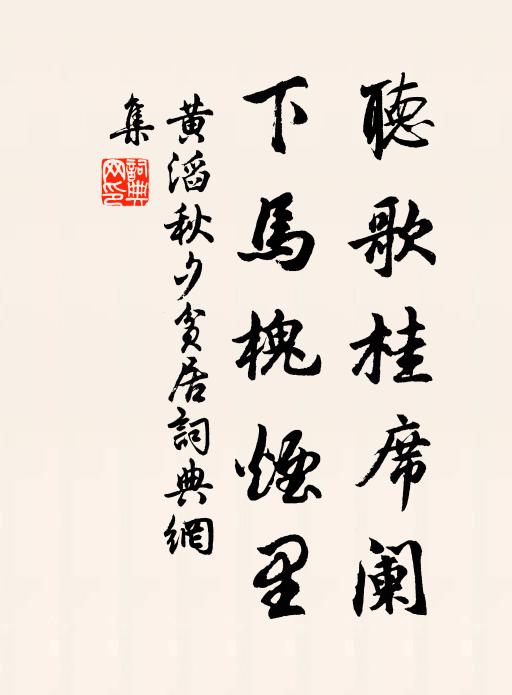 聽歌桂席闌
下馬槐煙里
黄滔秋夕貧居詞典網
集
詞典
网印